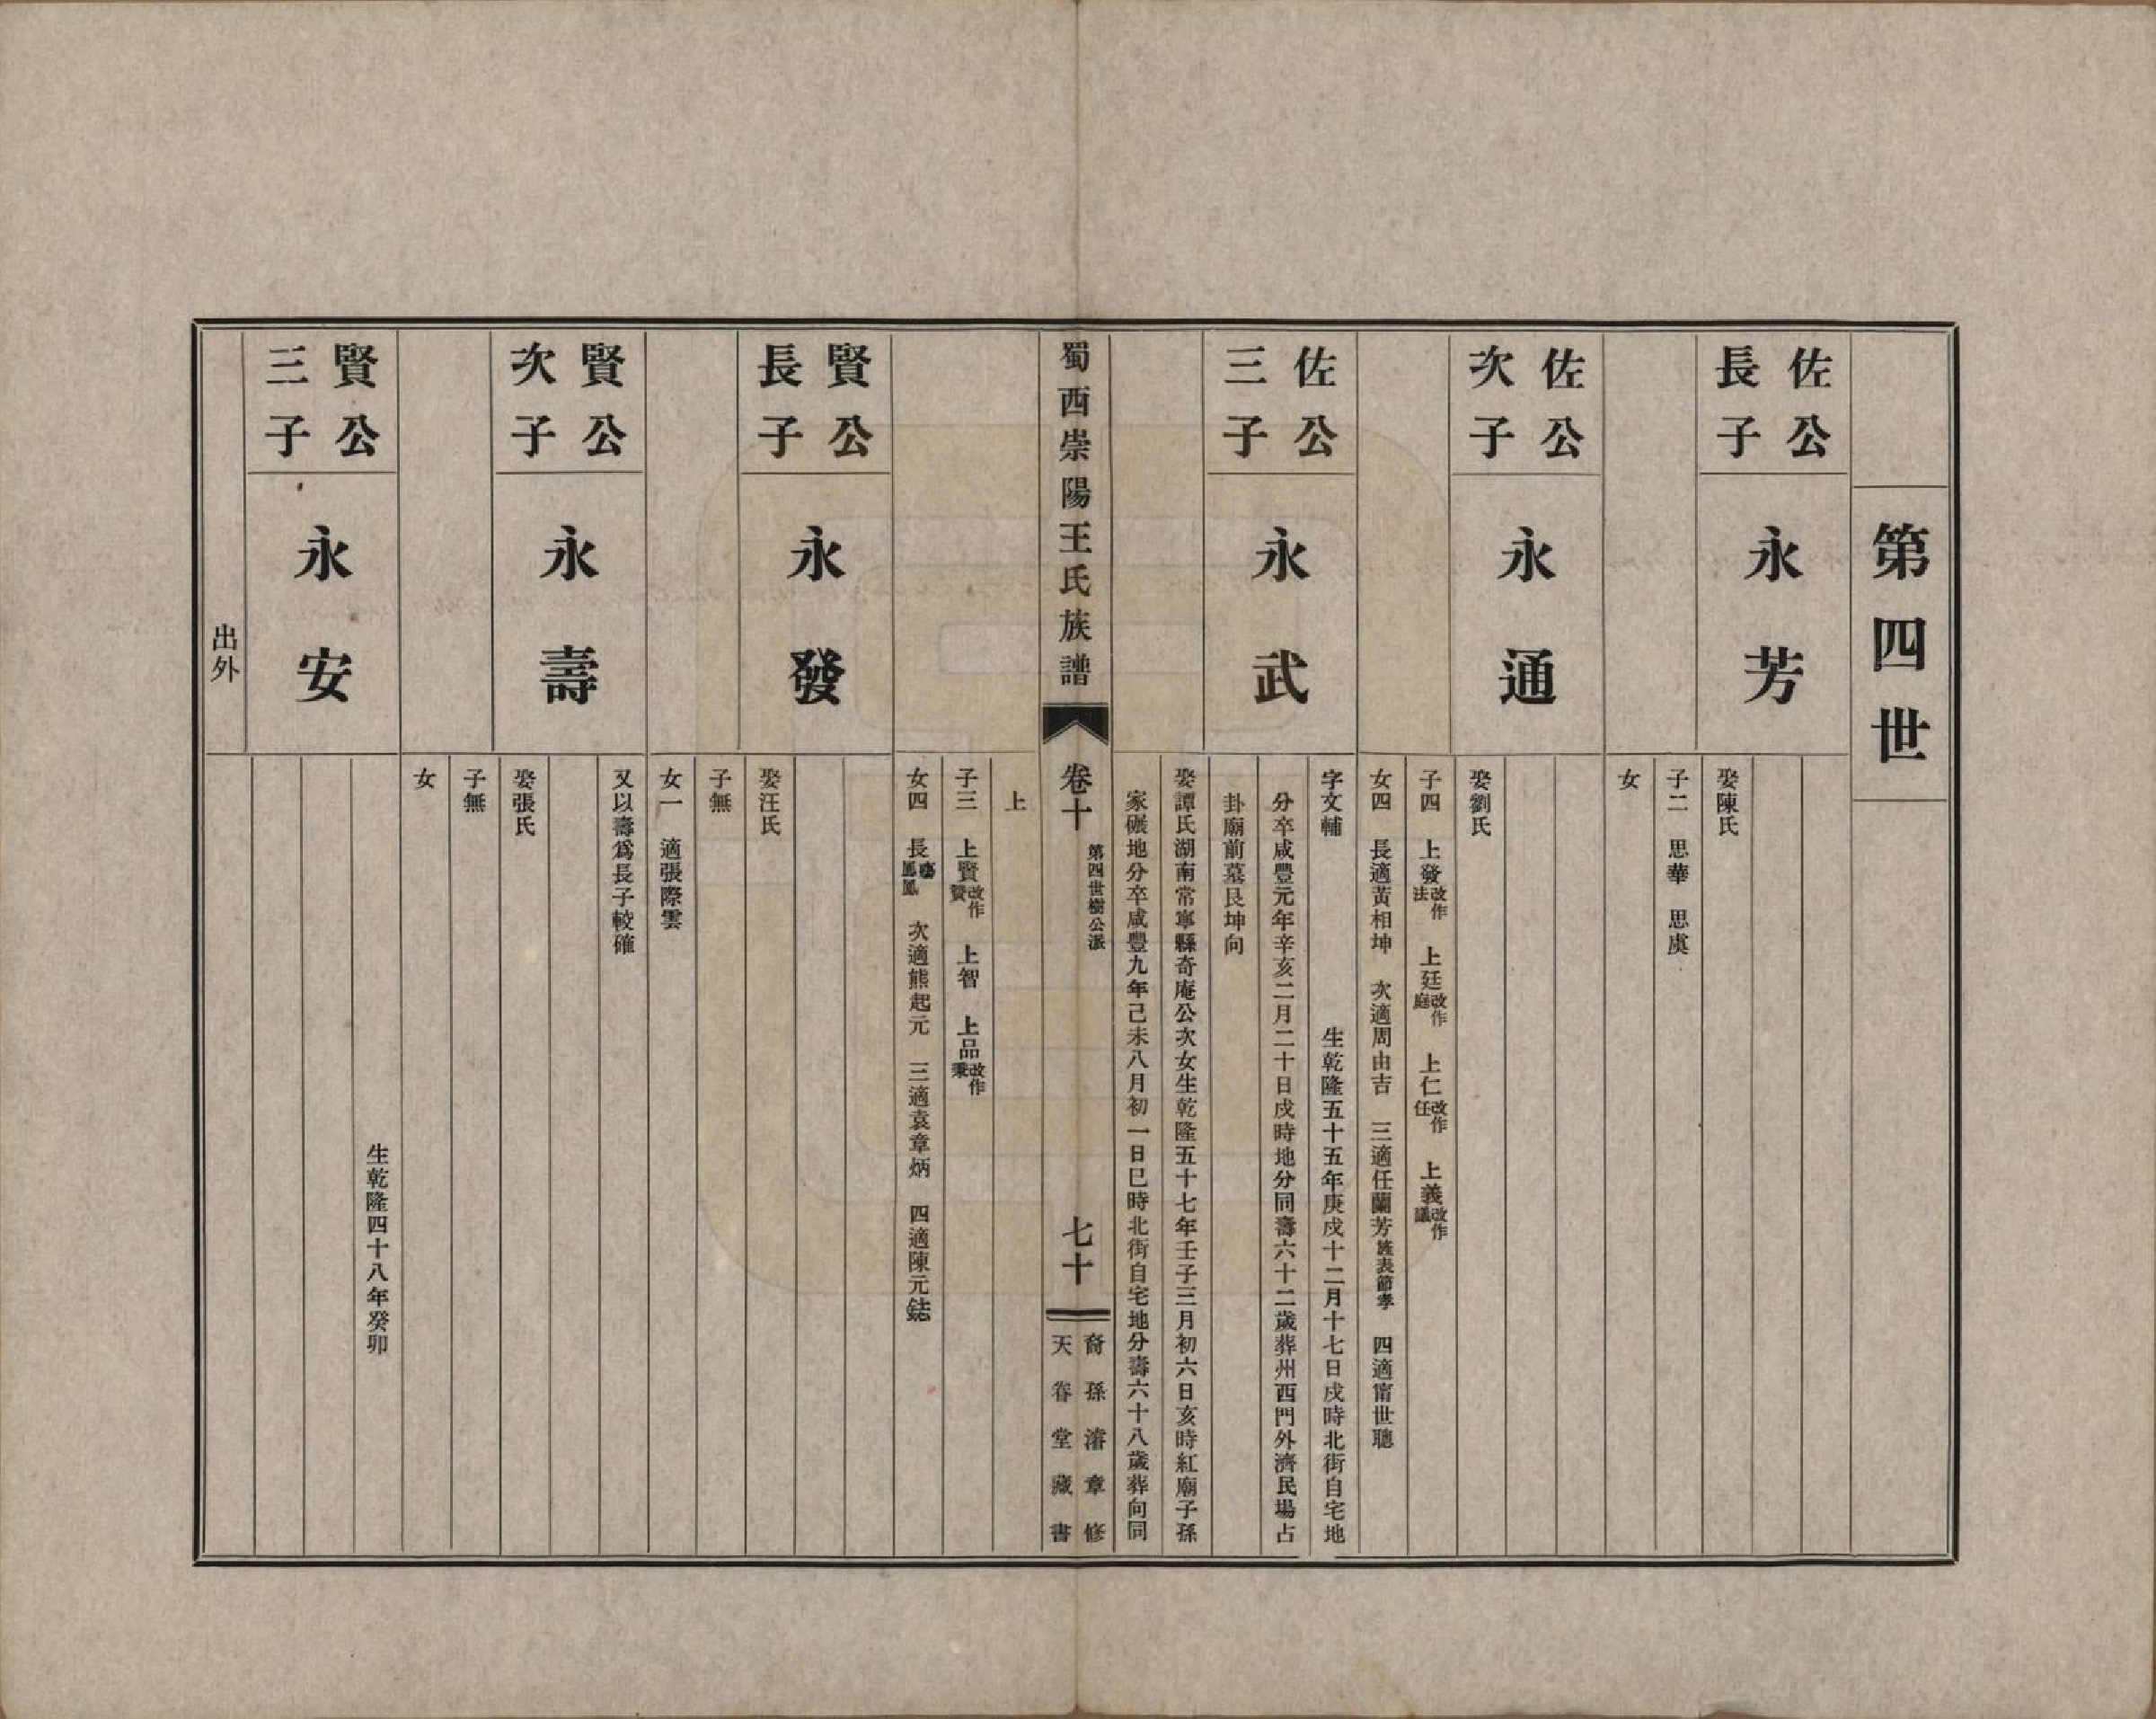 第四世
佐公
長子
永芳
娶陳氏
子二　思華　思虞
女
佐公
次子
永通
娶劉氏
子四　上發改作法　上廷改作庭　上仁改作任　上義改作議
女四　長適黃相坤　次適周由吉　三適任蘭芳旌表節孝　四適甯世聰
佐公
三子
永武
字文輔　生乾隆五十五年庚戌十二月十七日戌時北街自宅地
分卒咸豐元年辛亥二月二十日戌時地分同壽六十二歲葬州西門外濟民場占
卦廟前墓艮坤向
娶譚氏湖南常寧縣奇庵公次女生乾隆五十七年壬子三月初六日亥時紅廟子孫
家碾地分卒咸豐九年己未八月初一日巳時北街自宅地分壽六十八歲葬向同
蜀西崇陽王氏族譜
卷十
第四世樹公派
七十
裔孫濬章修
天眷堂藏書
上
子三　上賢改作贊　上智　上品改作秉
女四　長　次適熊起元　三適袁章炳　四適陳元鋕
賢公
長子
永發
娶汪氏
子無
女一　適張際雲
賢公
次子
永壽
又以壽爲長子較確
娶張氏
子無
女
賢公
三子
永安
生乾隆四十八年癸卯
出外